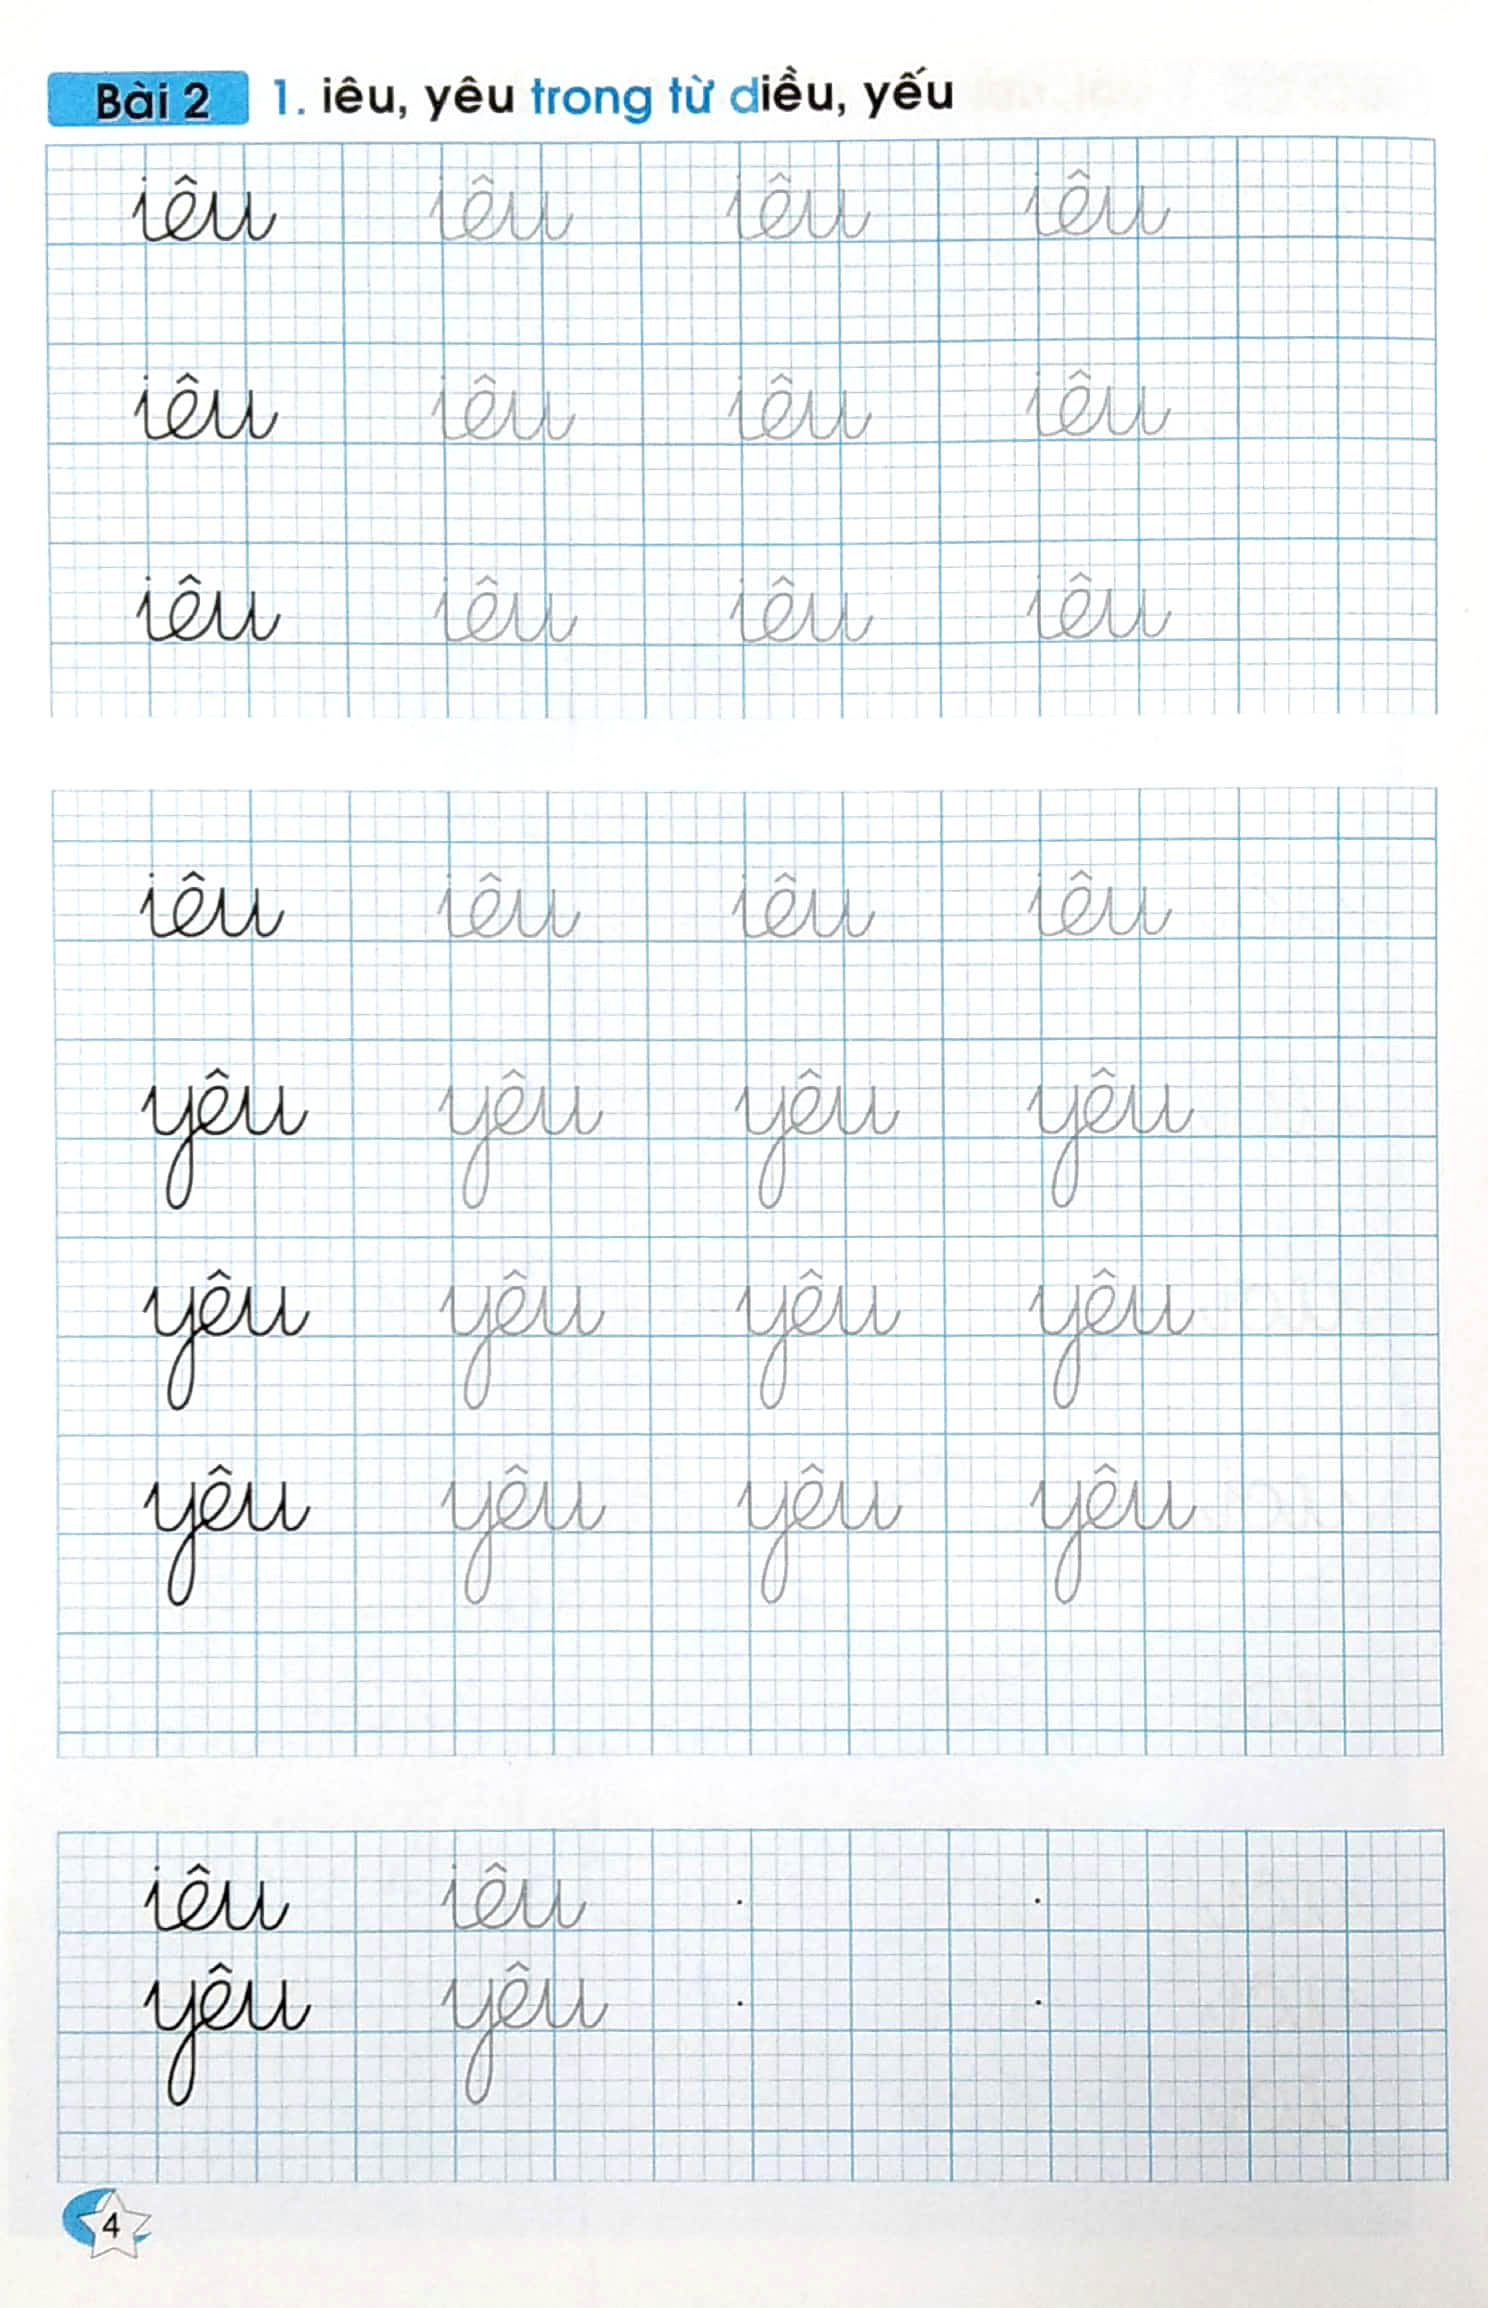 Bài 2 1. iêu, yêu trong từ diều, yếu
iêu iêu iêu iêu
iêu iêu iêu iêu
iêu iêu iêu iêu
iêu iêu iêu iêu
yêu yêu yêu yêu
yêu yêu yêu yêu
yêu yêu yêu yêu
iêu iêu
yêu yêu
4